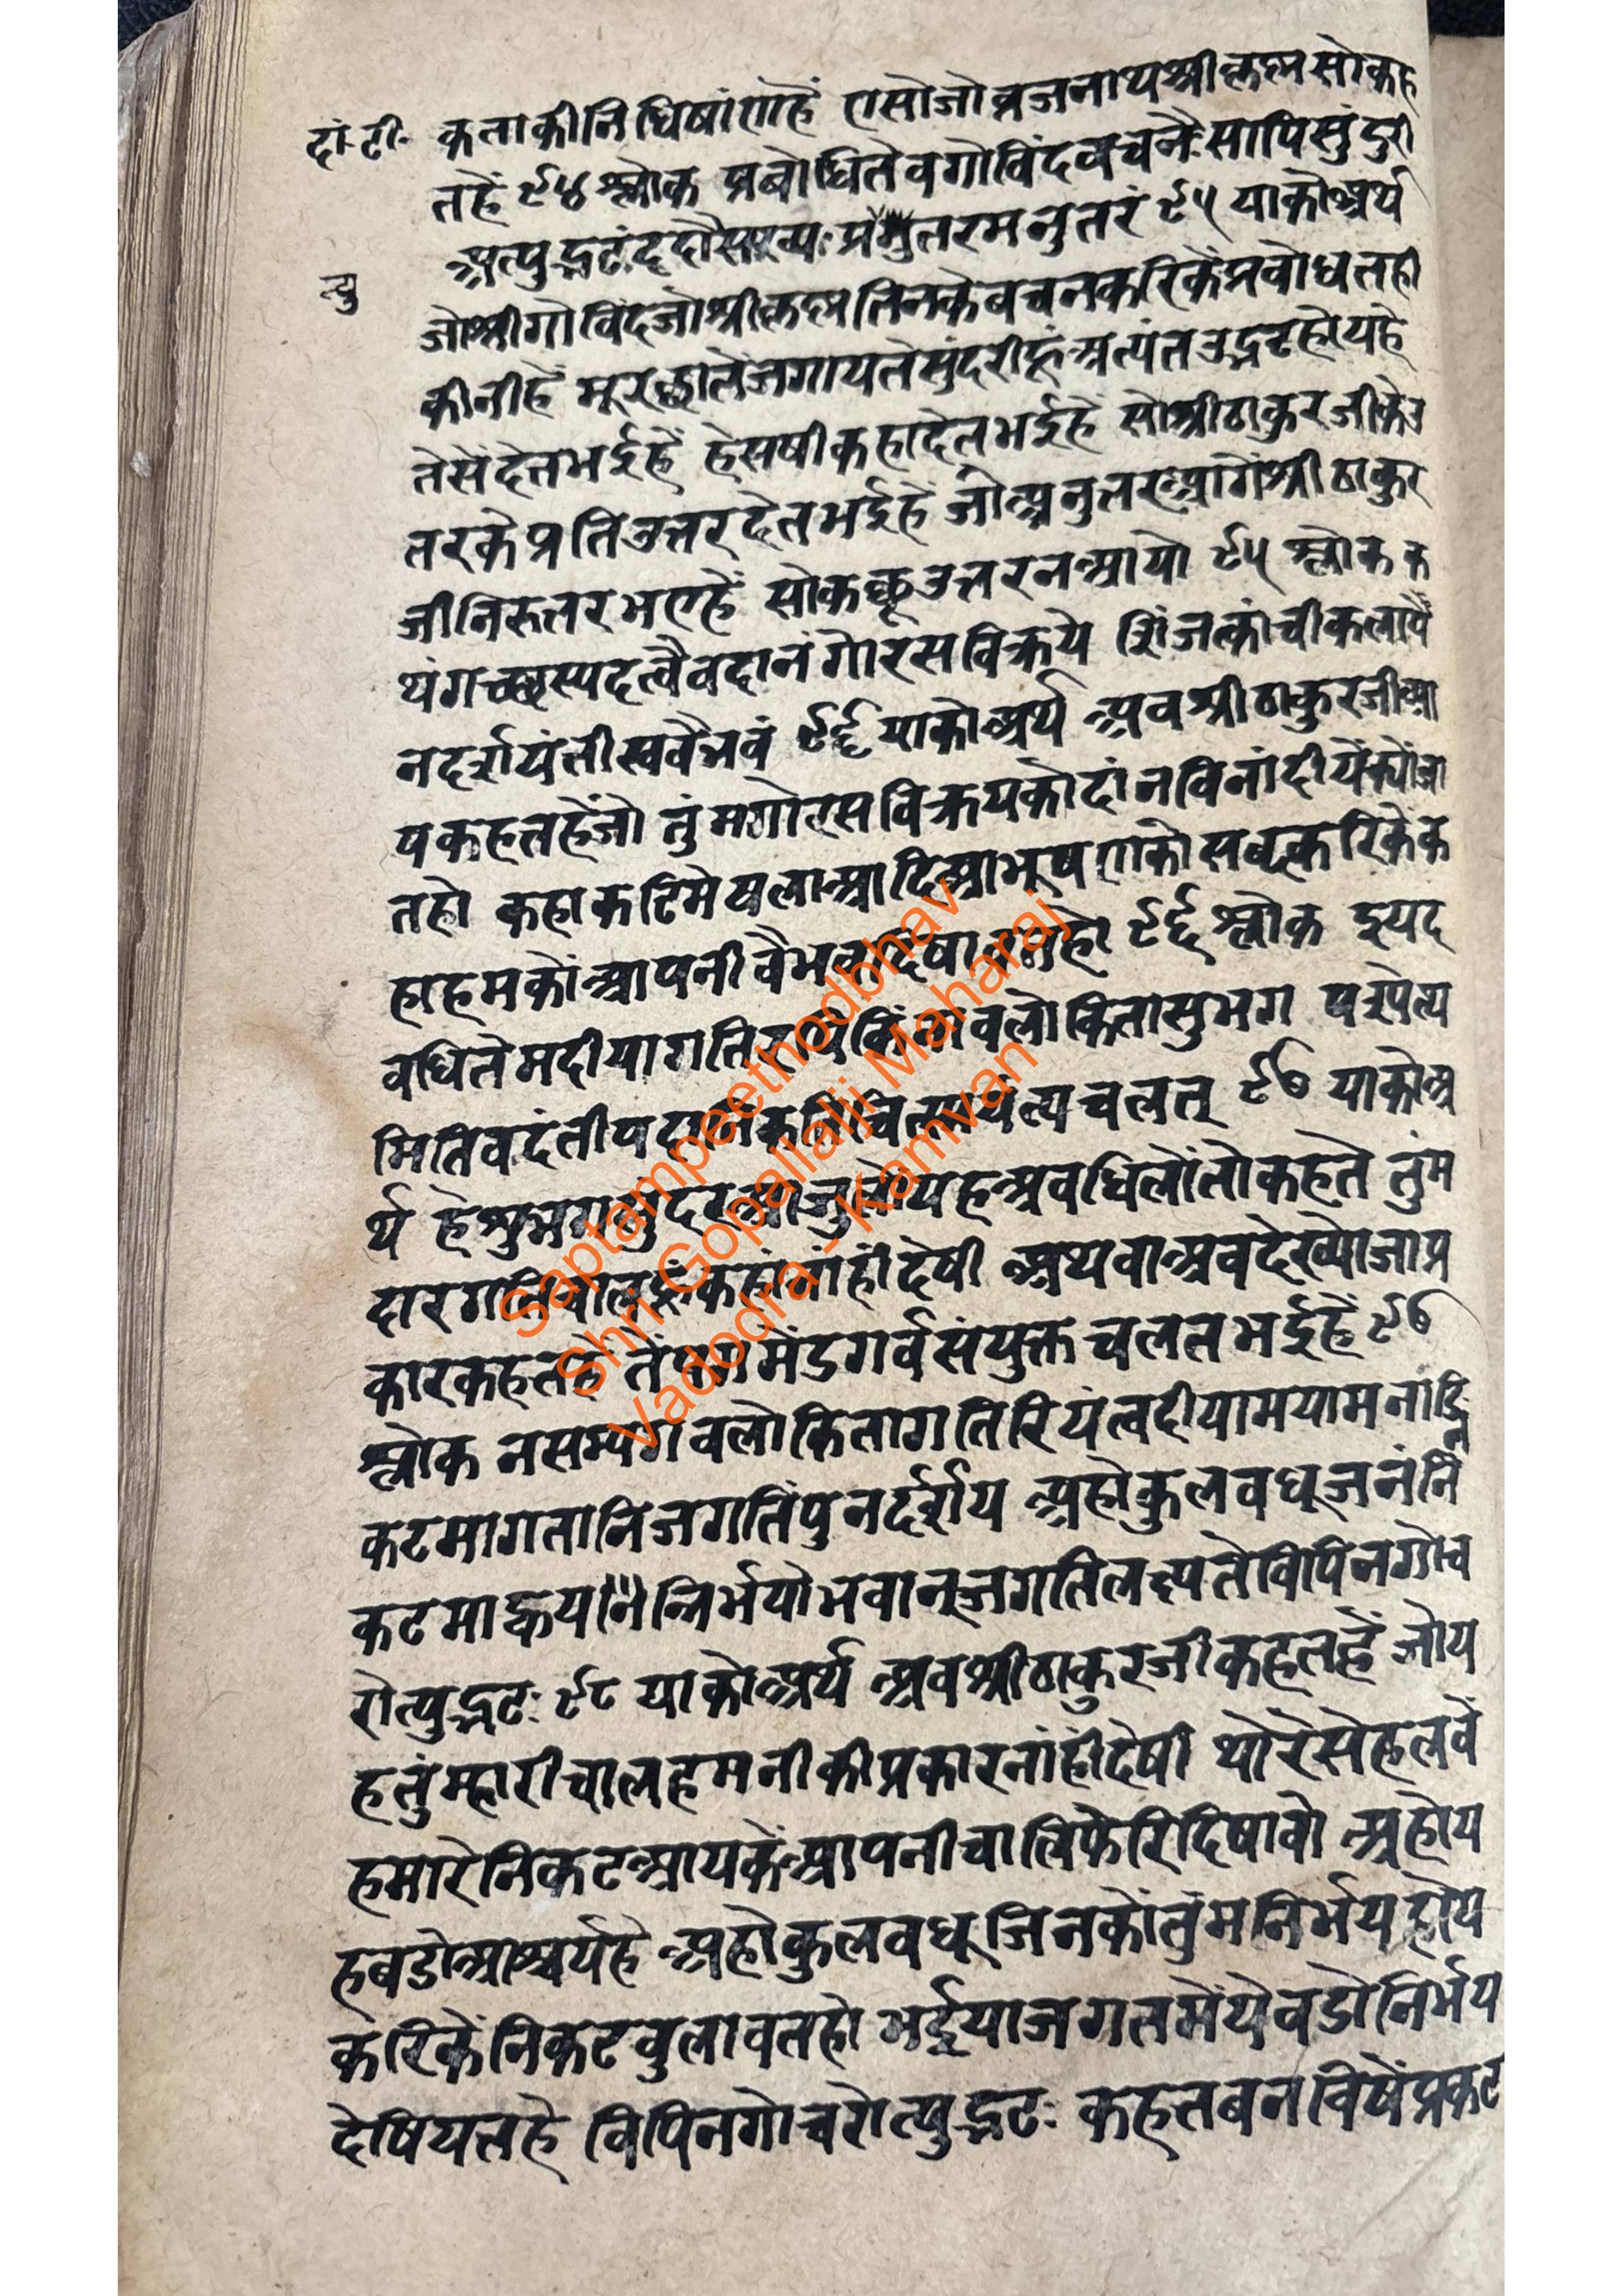 दां.टी.
कताकीनिधिषांणहैं एसोजोव्रजनाथश्रीकृष्णसोकह
तहैं ९४ श्लोक प्रबोधितैवगोविंदवचनैःसापिसुंदरी
अत्युद्भटंददौ प्रत्युत्तरमनुत्तरं ९५ याकोअर्थ
त्यु
जोश्रीगोविंदजोश्रीकृष्णतिनकेवचनकरिकेंप्रबोधतही
कीनीहैं मूरछातेंजगायतेसुंदरीहूंअत्यंतउद्भटहोयहै
तेसेंदेतभईहैं हेसषीकहादेतभईहै सोश्रीठाकुरजीकेउ
तरकेप्रतिउत्तरदेतभईहै जोअनुतरआगेंश्रीठाकुर
जीनिरुतरभएहैं सोकछूउत्तरनआयो ९५ श्लोक क
थंगच्छस्यदत्वैवदानंगोरसविक्रये शिंजत्कांचीकलापे
नदर्शयंतीस्ववैभवं ९६ याकोअर्थ अबश्रीठाकुरजीआ
पकहतहैंजो तुंमगोरसविक्रयकोदांनविनांदीयेंक्योंजा
तहो कहाकटिमेषलाआदिआभूषणकोसब्दकरिकेंक
हाहमकोंआपनीवैभवदिषावतहो ९६ श्लोक इयद
वधितेमदीयागति किंनावलोकितासुभग पश्येत्य
मितिवदंतीपदानि चलत् ९७ याकोअ
र्थ हेशुभगसुंदरआजुलोंयहअवधिलोंतोकहते तुंम
दारगतिचालहूंकहांनांहींदेषी अथवाअबदेख्योजाप्र
कारकहतहै तेंपगमेंडगर्वसंयुक्तचलतभईहैं ९७
श्लोक नसम्यगवलोकितागतिरियंत्वदीयामयामनाङ्नि
कटमागतानिजगतिंपुनर्दर्शय अहोकुलवधूजनंनि
कटमाह्वयन्निर्भयोभवान्जगतिलक्ष्यतेविपिनगोच
रोत्युद्भटः ९८ याकोअर्थ अबश्रीठाकुरजीकहतहैं जोय
हतुंम्हारीचालहमनीकीप्रकारनांहींदेषी थोरेसेहलवें
हमारेनिकटआयकेंआपनीचालिफेरिदिषावो अहोय
हबडोआश्चर्यहै अहोकुलवधूजिनकोंतुंमनिर्भयहोय
करिकेंनिकटबुलावतहो भईयाजगतमेंयेबडोनिर्भय
देषियतहै विपिनगोचरोत्युद्भटः कहतबनविषेंप्रकट
Saptampeethodbhav
Shri Gopallalji Maharaj
Vadodra - Kamvan